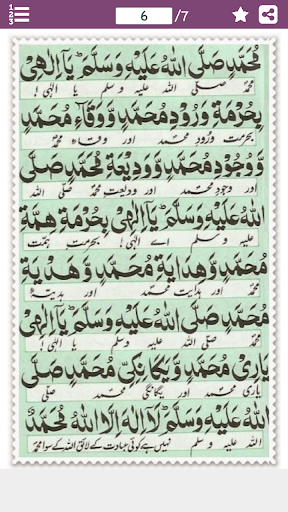 6 /7
مُحَمَّدٍ صَلَّى اللهُ عَلَيْهِ وَسَلَّمَ يَآ اِلٰهِىْ
محمد صلی اللہ علیہ وسلم یا الٰہی !
بِحُرْمَةِ وُرُوْدِ مُحَمَّدٍ وَّوَفَآءِ مُحَمَّدٍ
بحرمت ورودِ محمد اور وفاء محمد
وَّوُجُوْدِ مُحَمَّدٍ وَّوَدِيْعَةِ مُحَمَّدٍ صَلَّى
اور وجودِ محمد اور ودیعت محمد صلی اللہ
اللهُ عَلَيْهِ وَسَلَّمَ يَآ اِلٰهِىْ بِحُرْمَةِ هِمَّةِ
علیہ وسلم اے الٰہی ! بحرمت ہمت
مُحَمَّدٍ وَّهِدَايَةِ مُحَمَّدٍ وَّهَدْيَةِ
محمد اور ہدایت محمد اور ہدیۂ
مُحَمَّدٍ صَلَّى اللهُ عَلَيْهِ وَسَلَّمَ يَآ اِلٰهِىْ
محمد صلی اللہ علیہ وسلم یا الٰہی !
يَارِىْ مُحَمَّدٍ وَّيَگَانَگِىْ مُحَمَّدٍ صَلَّى
یاری محمد اور یگانگی محمد صلی
اللهُ عَلَيْهِ وَسَلَّمَ لَآ اِلٰهَ اِلَّا اللهُ مُحَمَّدٌ
اللہ علیہ وسلم نہیں ہے کوئی عبادت کے لائق اللہ کے سوا محمد